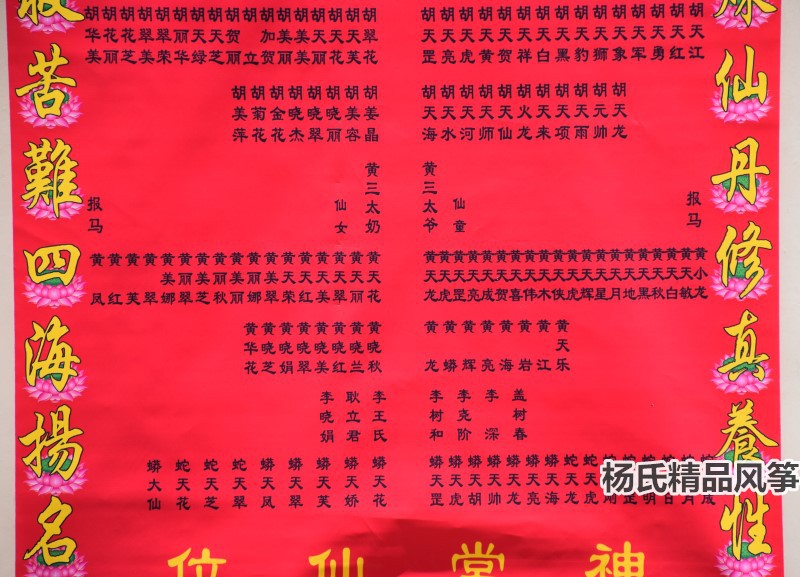 脉仙丹修真養性
胡天江
胡天红
胡天勇
胡天军
胡天象
胡天狮
胡天豹
胡天黑
胡天白
胡天祥
胡天贺
胡天黄
胡天虎
胡天亮
胡天罡
胡翠花
胡天芙
胡天花
胡天丽
胡美美
胡美丽
胡加贺
胡立
胡贺丽
胡天芝
胡天绿
胡丽华
胡翠荣
胡翠美
胡花芝
胡花丽
胡华美
胡天龙
胡元帅
胡天雨
胡天项
胡天来
胡火龙
胡天仙
胡天师
胡天河
胡天水
胡天海
胡姜晶
胡美容
胡晓丽
胡晓翠
胡晓杰
胡金花
胡菊花
胡美萍
报马
仙童
黄三太爷
黄三太奶
仙女
报马
黄小龙
黄天敏
黄天白
黄天秋
黄天黑
黄天地
黄天月
黄天星
黄天辉
黄天虎
黄天侠
黄天木
黄天伟
黄天喜
黄天贺
黄天成
黄天亮
黄天罡
黄天虎
黄天龙
黄天花
黄天丽
黄天翠
黄天美
黄天红
黄天荣
黄美翠
黄丽娜
黄美丽
黄丽秋
黄美芝
黄丽翠
黄美娜
黄翠
黄芙
黄红
黄凤
黄天乐
黄江
黄岩
黄海
黄亮
黄辉
黄蟒
黄龙
黄晓秋
黄晓兰
黄晓红
黄晓美
黄晓翠
黄晓娟
黄晓芝
黄华花
盖树春
李深
李尧阶
李树和
李王氏
耿立君
李晓娟
蛇天龙
蛇天海
蟒天亮
蟒天龙
蟒天帅
蟒天胡
蟒天虎
蟒天罡
蟒天花
蟒天娇
蟒天芙
蟒天翠
蟒天凤
蛇天翠
蛇天芝
蛇天花
蟒大仙
苦難四海揚名
神堂仙位
杨氏精品风筝